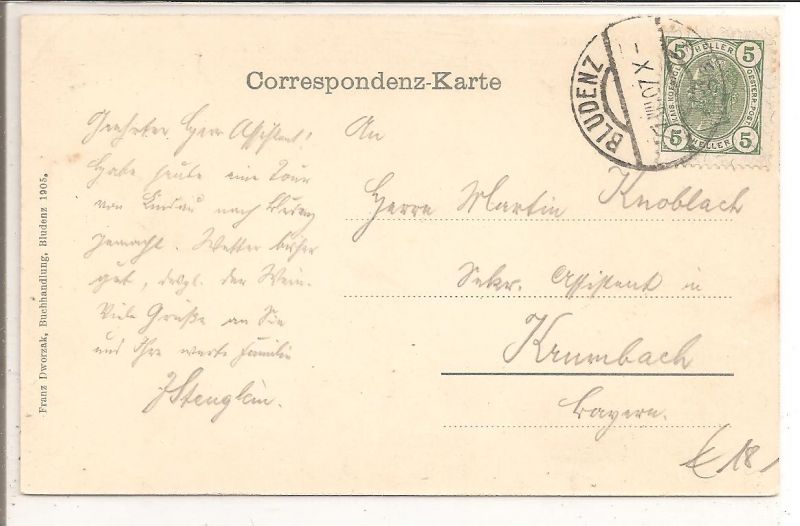 Correspondenz-Karte
BLUDENZ
5 HELLER 5
5 HELLER 5
Geehrter Herr Assistent!
Habe heute eine Tour
von Lindau nach Bludenz
gemacht. Wetter bisher
gut, desgl. der Wein.
Viele Grüße an Sie
und Ihre werte Familie
JStenglein.
An
Herrn Martin Knoblach
Sekr. Assistent in
Krumbach
Bayern.
Franz Dworzak, Buchhandlung, Bludenz 1905.
18